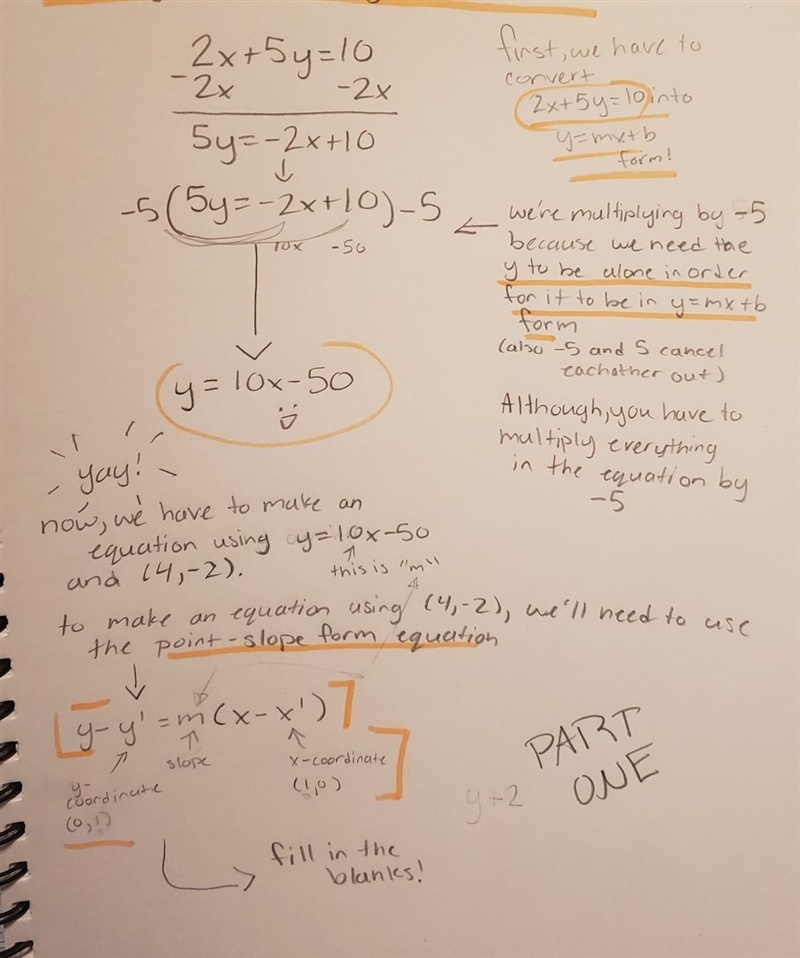 2x+5y=10
-2x -2x
5y=-2x+10
-5(5y=-2x+10)-5
10x -50
y=10x-50
yay!
first, we have to
convert
2x+5y=10 into
y=mx+b
form!
we're multiplying by -5
because we need the
y to be alone in order
for it to be in y=mx+b
form
(also -5 and 5 cancel
eachother out)
Although, you have to
multiply everything
in the equation by
-5
now, we have to make an
equation using y=10x-50
and (4,-2).
this is "m"
to make an equation using (4,-2), we'll need to use
the point-slope form equation
y-y'=m(x-x')
y-
coordinate
(0,1)
slope
x-coordinate
(1,0)
y+2
PART
ONE
fill in the
blanks!